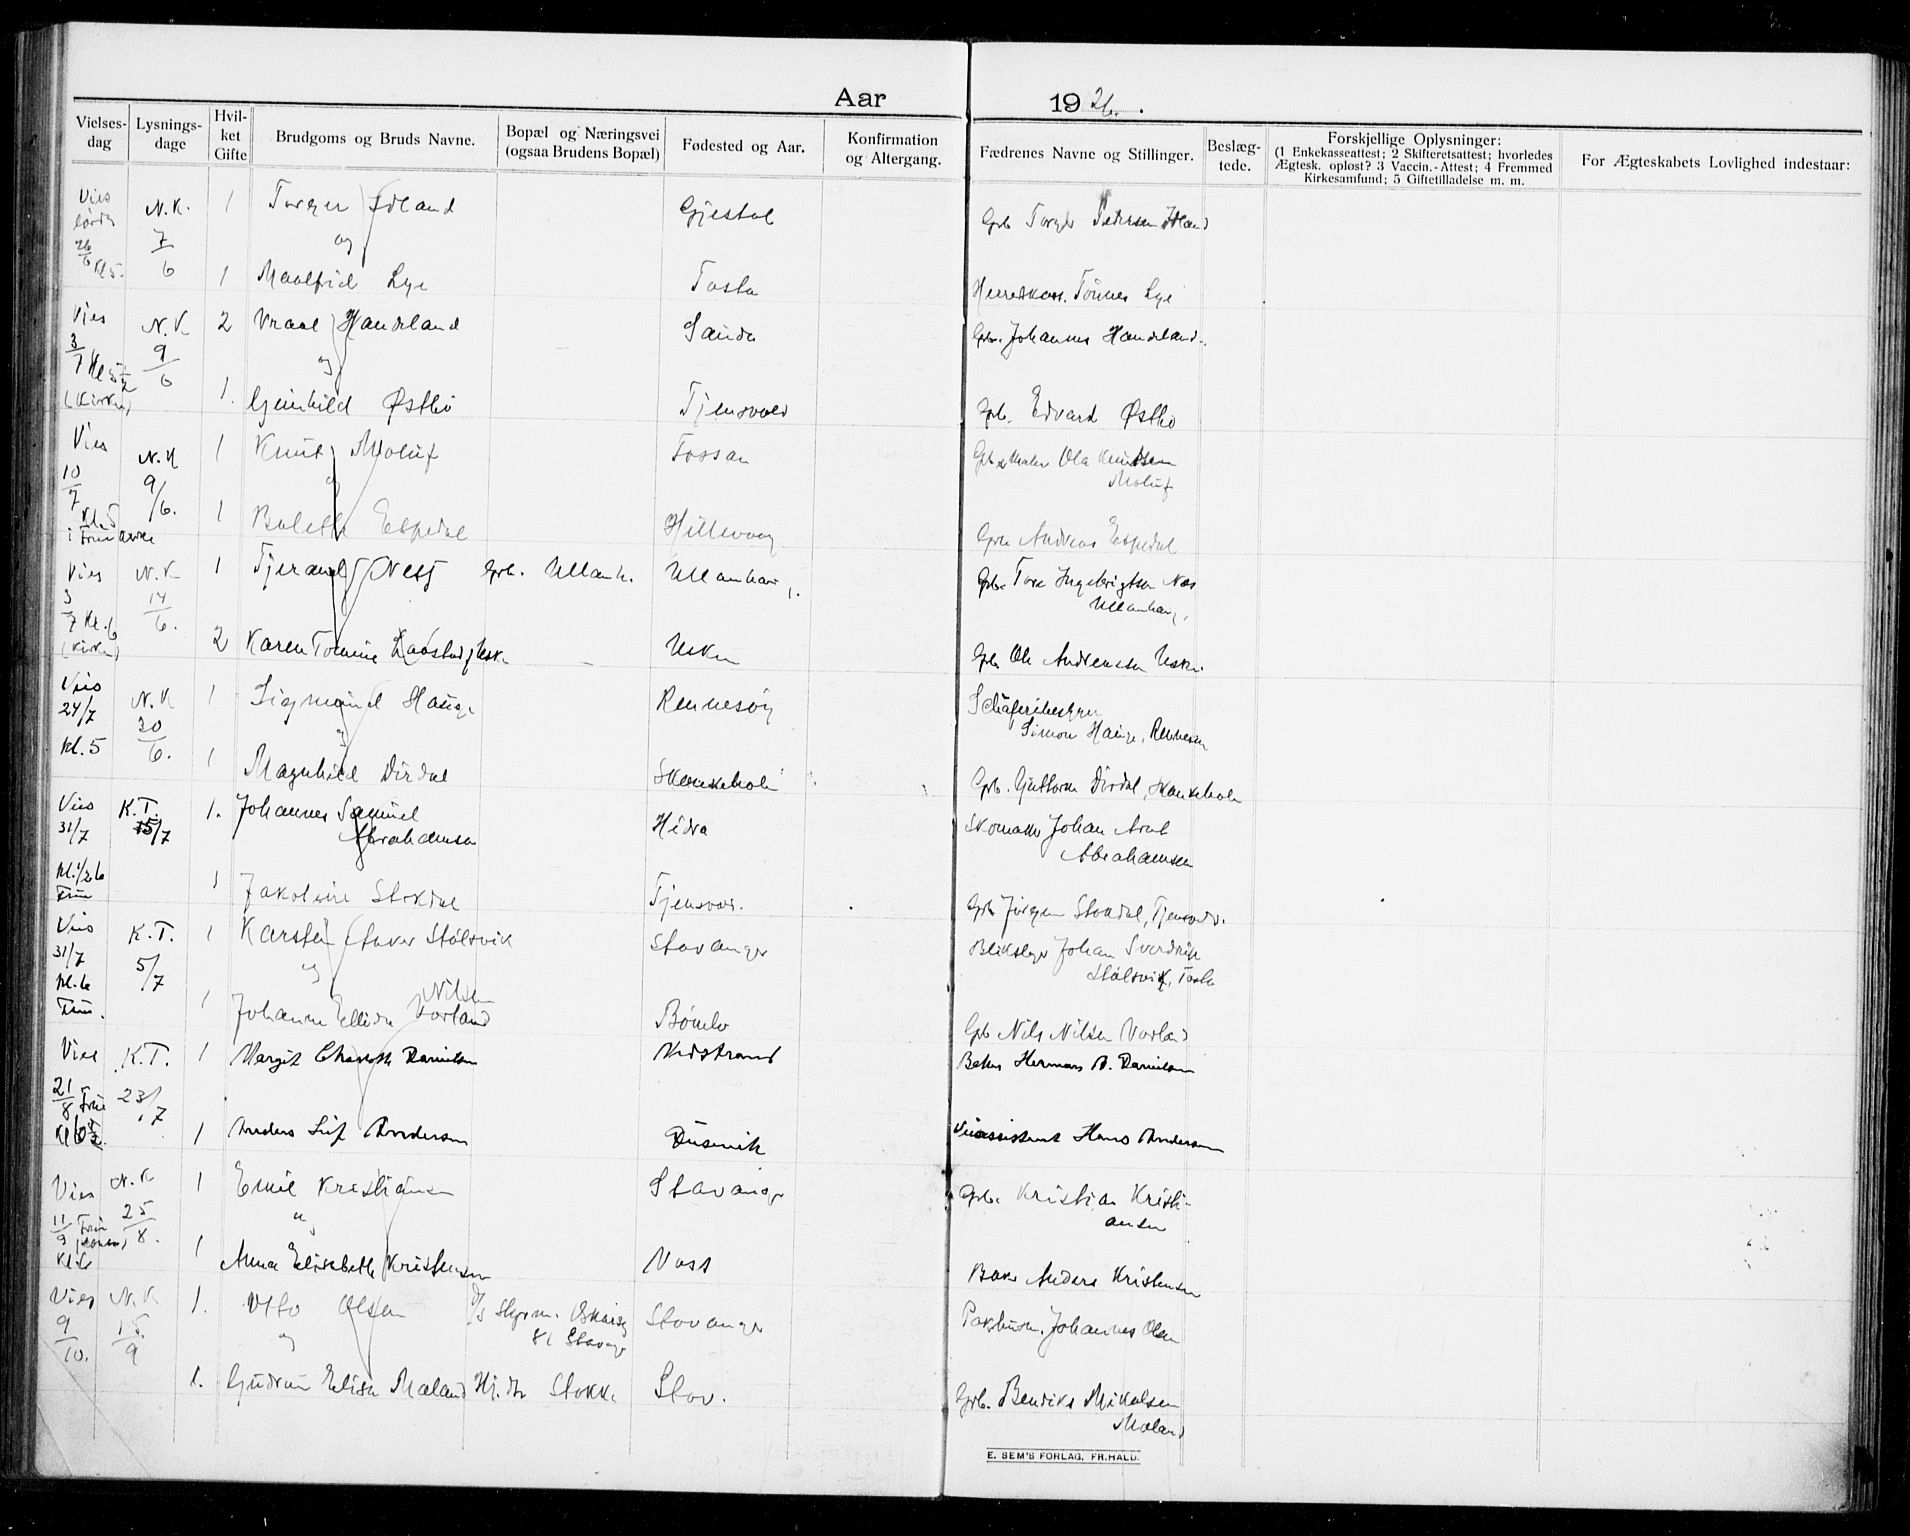 Aar 1926.
Vielses-dag
Lysnings-dage
Hvil-ket Gifte
Brudgoms og Bruds Navne.
Bopæl og Næringsvei (ogsaa Brudens Bopæl)
Fødested og Aar.
Konfirmation og Altergang.
Fædrenes Navne og Stillinger.
Beslæg-tede.
Forskjellige Oplysninger:
(1 Enkekasseattest; 2 Skifteretsattest; hvorledes
Ægtesk. oplost? 3 Vaccin.-Attest; 4 Fremmed
Kirkesamfund; 5 Giftetilladelse m. m.
For Ægteskabets Lovlighed indestaar:
Vies 26/6 Kl 5. N.K. 7/6 1 Torger Idland Gjestal Grb Torger Pedersen Idland
og
1 Maalfrid Lye Tasta Tönnes Lye
Vies 3/7 Kl 5½ (Kirken) N.K 9/6 2 Vraal Handeland Sauda Grb. Johannes Handeland.
og
1. Gunhild Østbö Tjensvold Grb. Edvard Østbö
Vies 10/7 N.K 9/6. 1 Knut Moluf Fossan Ola Knudsen
Moluf
1 Bolette Espedal Hillevaag Grb Andreas Espedal
Vies 3/7 Kl. 6 (Kirken) N.K 14/6. 1 Tjerand Nesj Grb. Ullanh. Ullanhaug. Grb. Tore Ingebrigtsen Næs
Ullanhaug,
2 Karen Tomine Usken Usken Grb Ole Andreassen Usken
Vies 24/7 Kl. 5 N.K 30/6. 1 Sigmund Hauge Rennesöy Schäferibestyrer
Simon Hauge, Rennesöy
1 Magnhild Dirdal Skankeholm Grb. Guttorm Dirdal, Skankeholm
Vies 31/7 Kl. ½6 Frue K.T. 15/7 1. Johannes Samuel Hidra Skomaker Johan Arnt
Abrahamsen Abrahamsen
1 Jakobine Stokdal Tjensvol. Grb Jörgen Stokdal, Tjensvold.
Vies 31/7 Kl. 6 Frue. K.T. 5/7 1 Karsten Stölsvik Stavanger Blikslager Johan Sverdrup
og Stölsvik, Tasta
1 Johanne Ellida Nilsen
Vorland Bömlo Grb Nils Nilsen Vorland
Vies 21/8 Frue K.T. 23/7 1 Margit Charlotte Danielsen Vidstrand Herman B. Danielsen
1 Anders Leif Andersen Dusevik Hans Andersen
Vies 11/9 Frue Kl. 6 N.K 25/8. 1 Emil Kristiansen Stavanger Grb. Kristian Kristi-
og ansen
1 Anna Elisabeth Kristensen Voss Anders Kristensen
Vies 9/10. N.K 15/9 1. Otto Olsen Stavanger Pakhusm. Johannes Olsen
og 81 Stavger
1. Gudrun Elisa Mæland Hj. dtr Stokka Stav. Grb. Bendiks Mikalsen
Mæland
E. SEM'S FORLAG, FR.HALD.